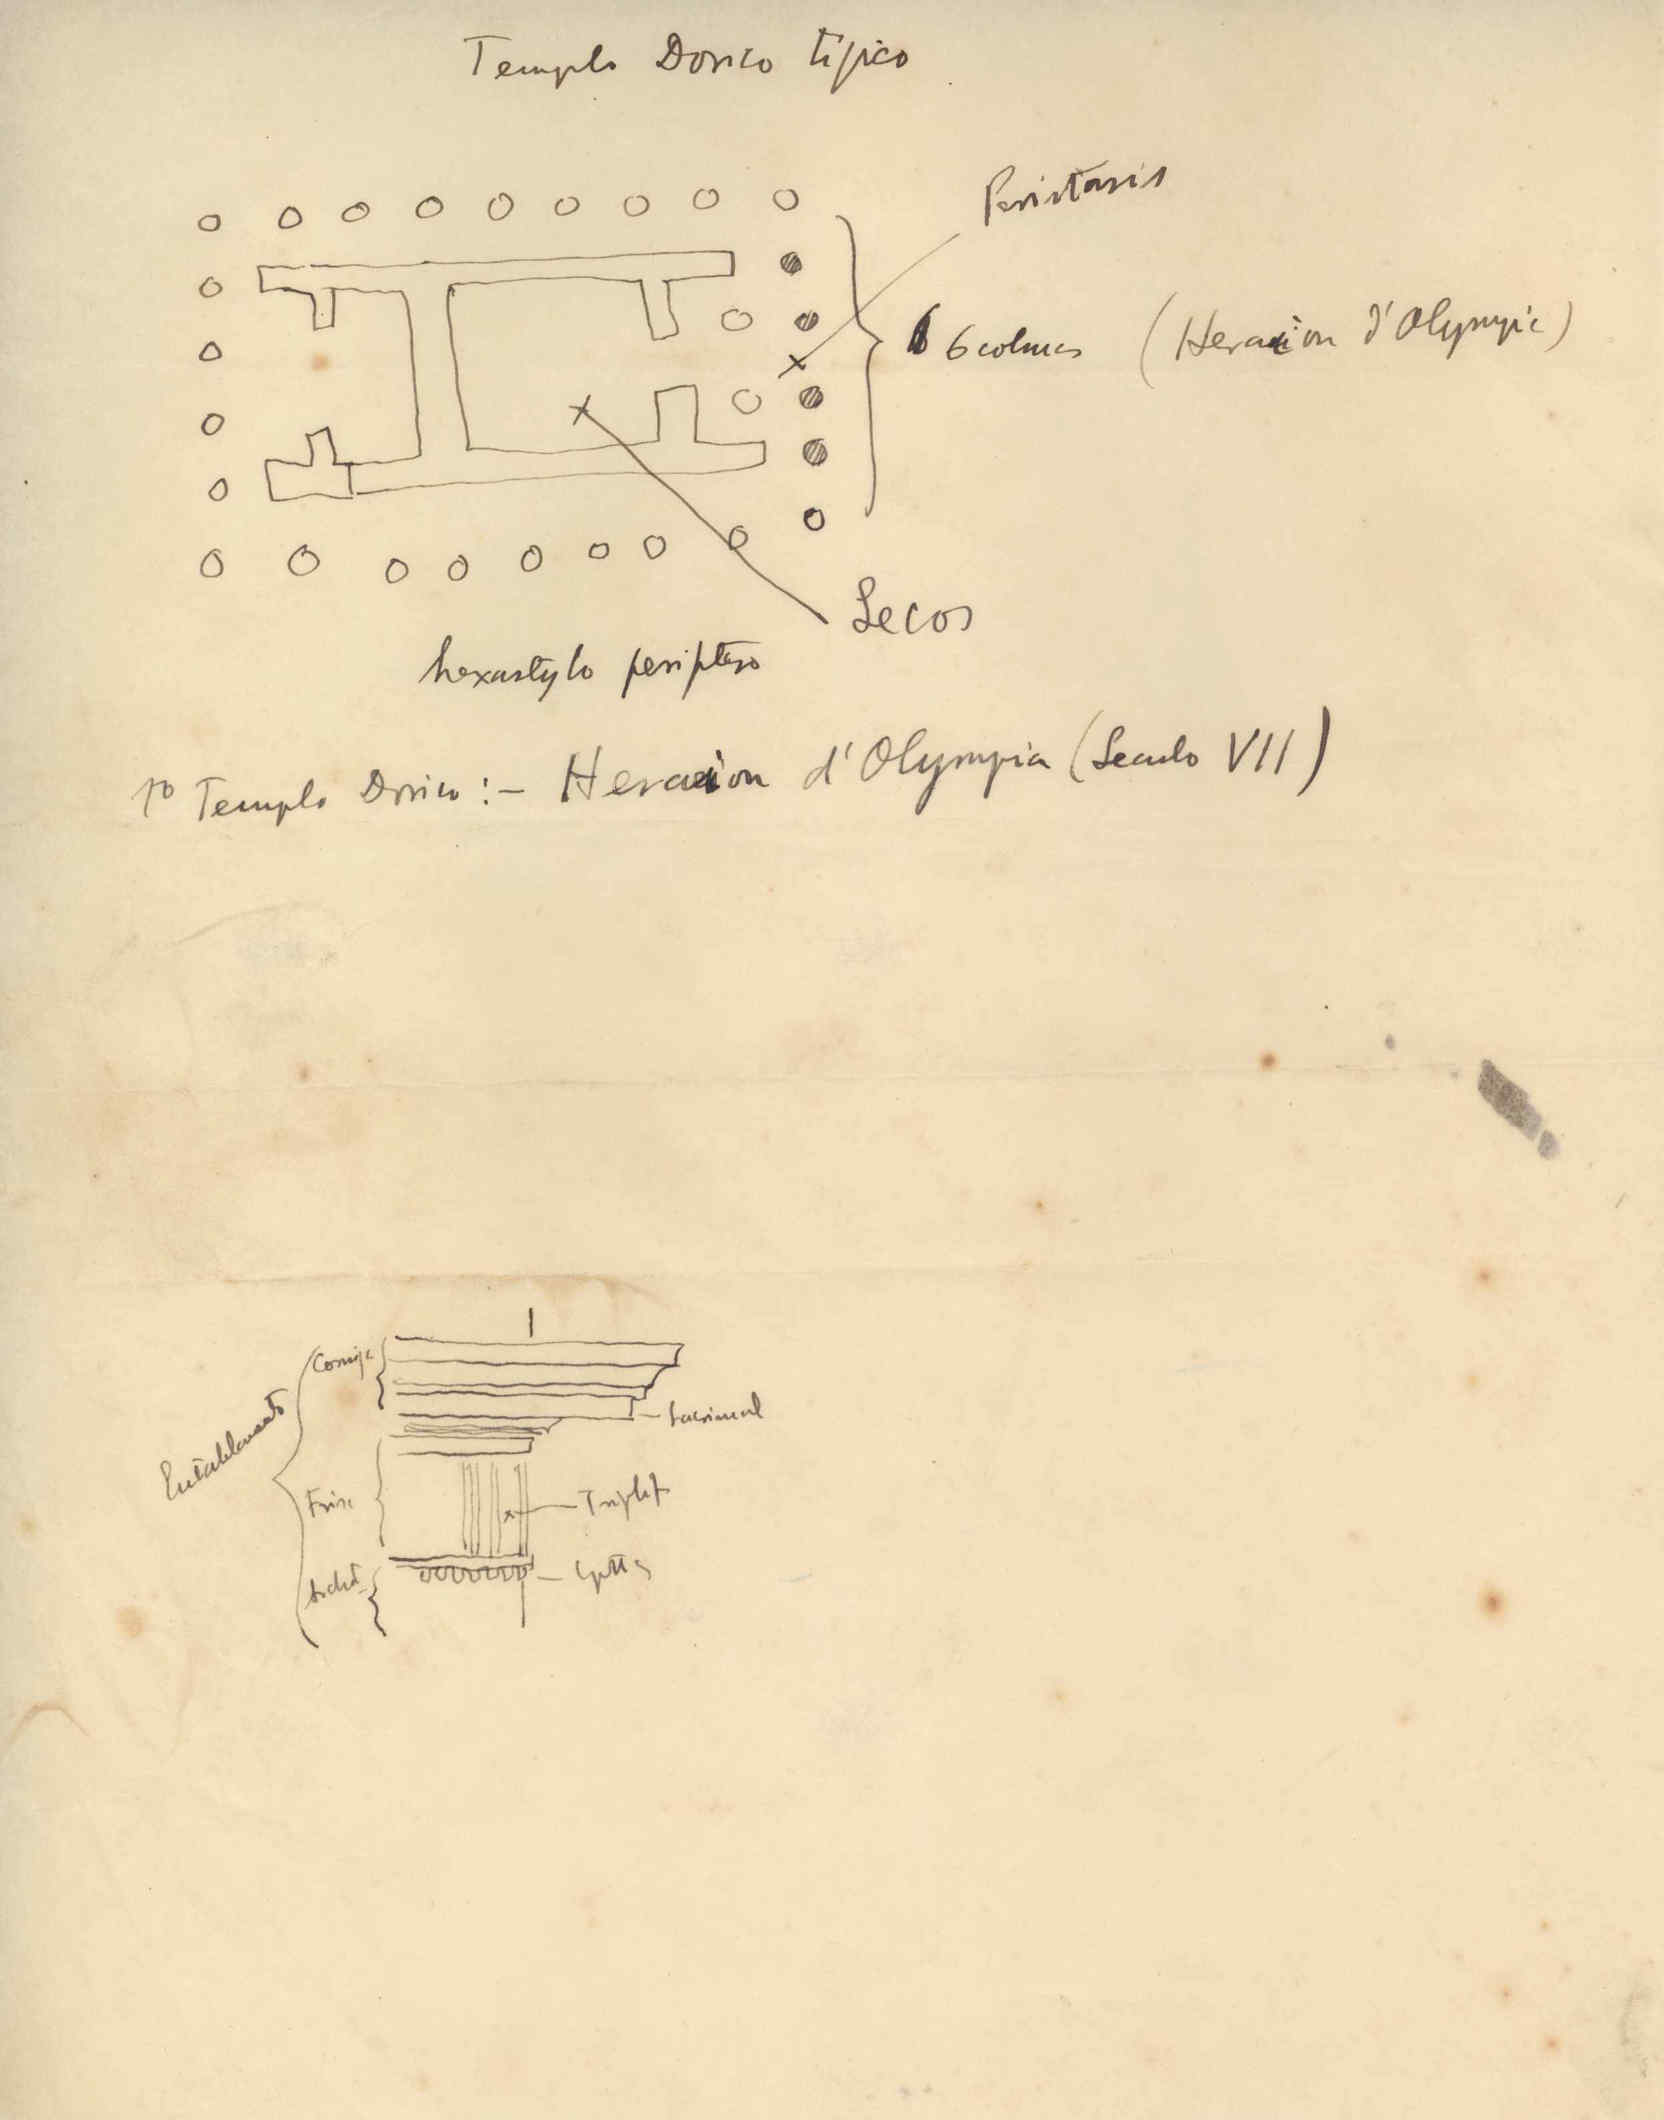 Templo Dorico típico
Peristasis
6 6 colunas (Heraion d'Olympia)
Secos
hexastylo periptero
1º Templo Dorico :- Heraion d'Olympia (Seculo VII)
Cornija
Lacrimal
Entablamento
Friso
Triglif
Archit
gottas